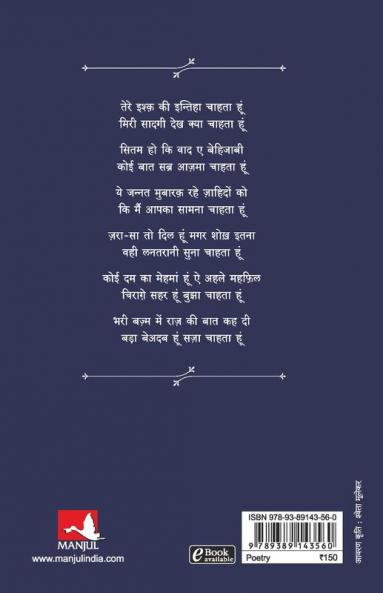 तेरे इश्क़ की इन्तिहा चाहता हूं
मिरी सादगी देख क्या चाहता हूं
सितम हो कि वाद ए बेहिजाबी
कोई बात सब्र आज़मा चाहता हूं
ये जन्नत मुबारक़ रहे ज़ाहिदों को
कि मैं आपका सामना चाहता हूं
ज़रा-सा तो दिल हूं मगर शोख़ इतना
वही लनतरानी सुना चाहता हूं
कोई दम का मेहमां हूं ऐ अहले महफ़िल
चिराग़े सहर हूं बुझा चाहता हूं
भरी बज़्म में राज़ की बात कह दी
बड़ा बेअदब हूं सज़ा चाहता हूं
MANJUL
www.manjulindia.com
e Book
available
ISBN 978-93-89143-56-0
9 789389 143560
Poetry ₹150
आवरण कृति : श्वेता मूलेकर